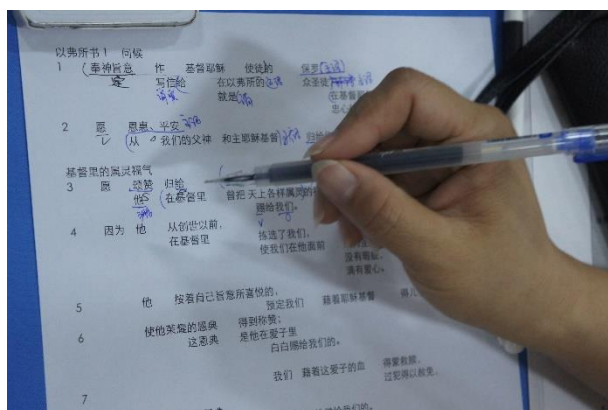 以弗所书1 问候
1 (奉神旨意 作 基督耶稣 使徒的 保罗(主语)
定 写信给 在以弗所的 众圣徒
就是 (在基督
忠心
2 愿 恩惠、平安 主语
V (从 我们的父神 和主耶稣基督) 归给
基督里的属灵福气
3 愿 颂赞 归给
他 (在基督里 曾把天上各样属灵的
赐给我们。
4 因为 他 从创世以前, 拣选了我们,
在基督里 使我们在他面前
没有瑕疵,
满有爱心。
5 他 按着自己旨意所喜悦的,
预定我们 藉着耶稣基督 得儿
6 使他荣耀的恩典 得到称赞;
这恩典 是他在爱子里
白白赐给我们的。
我们 藉着这爱子的血 得蒙救赎,
过犯得以赦免,
7